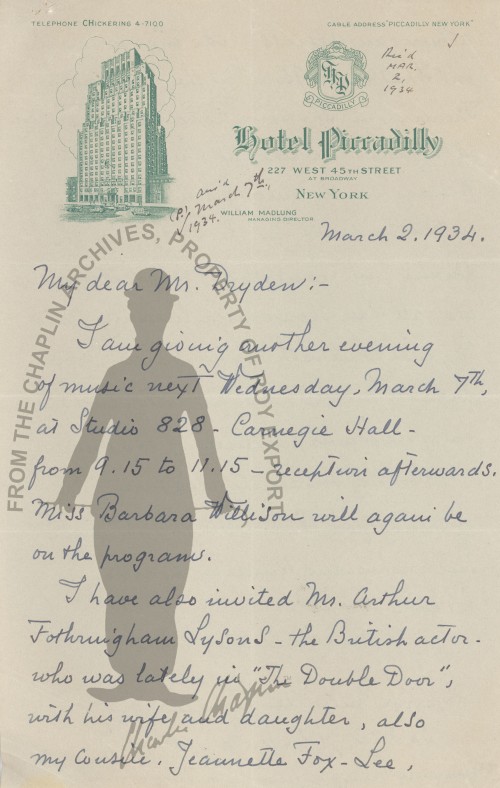 TELEPHONE CHICKERING 4-7100
CABLE ADDRESS "PICCADILLY NEW YORK"
Rec'd
MAR.
2,
1934
HP
PICCADILLY
Hotel Piccadilly
227 WEST 45TH STREET
AT BROADWAY
NEW YORK
WILLIAM MADLUNG
MANAGING DIRECTOR
(P.) ans'd
March 7th,
1934.
March 2. 1934.
My dear Mr. Dryden:-
I am giving another evening
of music next Wednesday, March 7th,
at Studio 828 - Carnegie Hall -
from 9.15 to 11.15 - reception afterwards.
Miss Barbara Willison will again be
on the program.
I have also invited Mr. Arthur
Fothringham Lysons - the British actor -
who was lately in "The Double Door",
with his wife and daughter, also
my cousin, Jeannette Fox-Lee,
FROM THE CHAPLIN ARCHIVES, PROPERTY OF ROY EXPORT
Charlie Chaplin